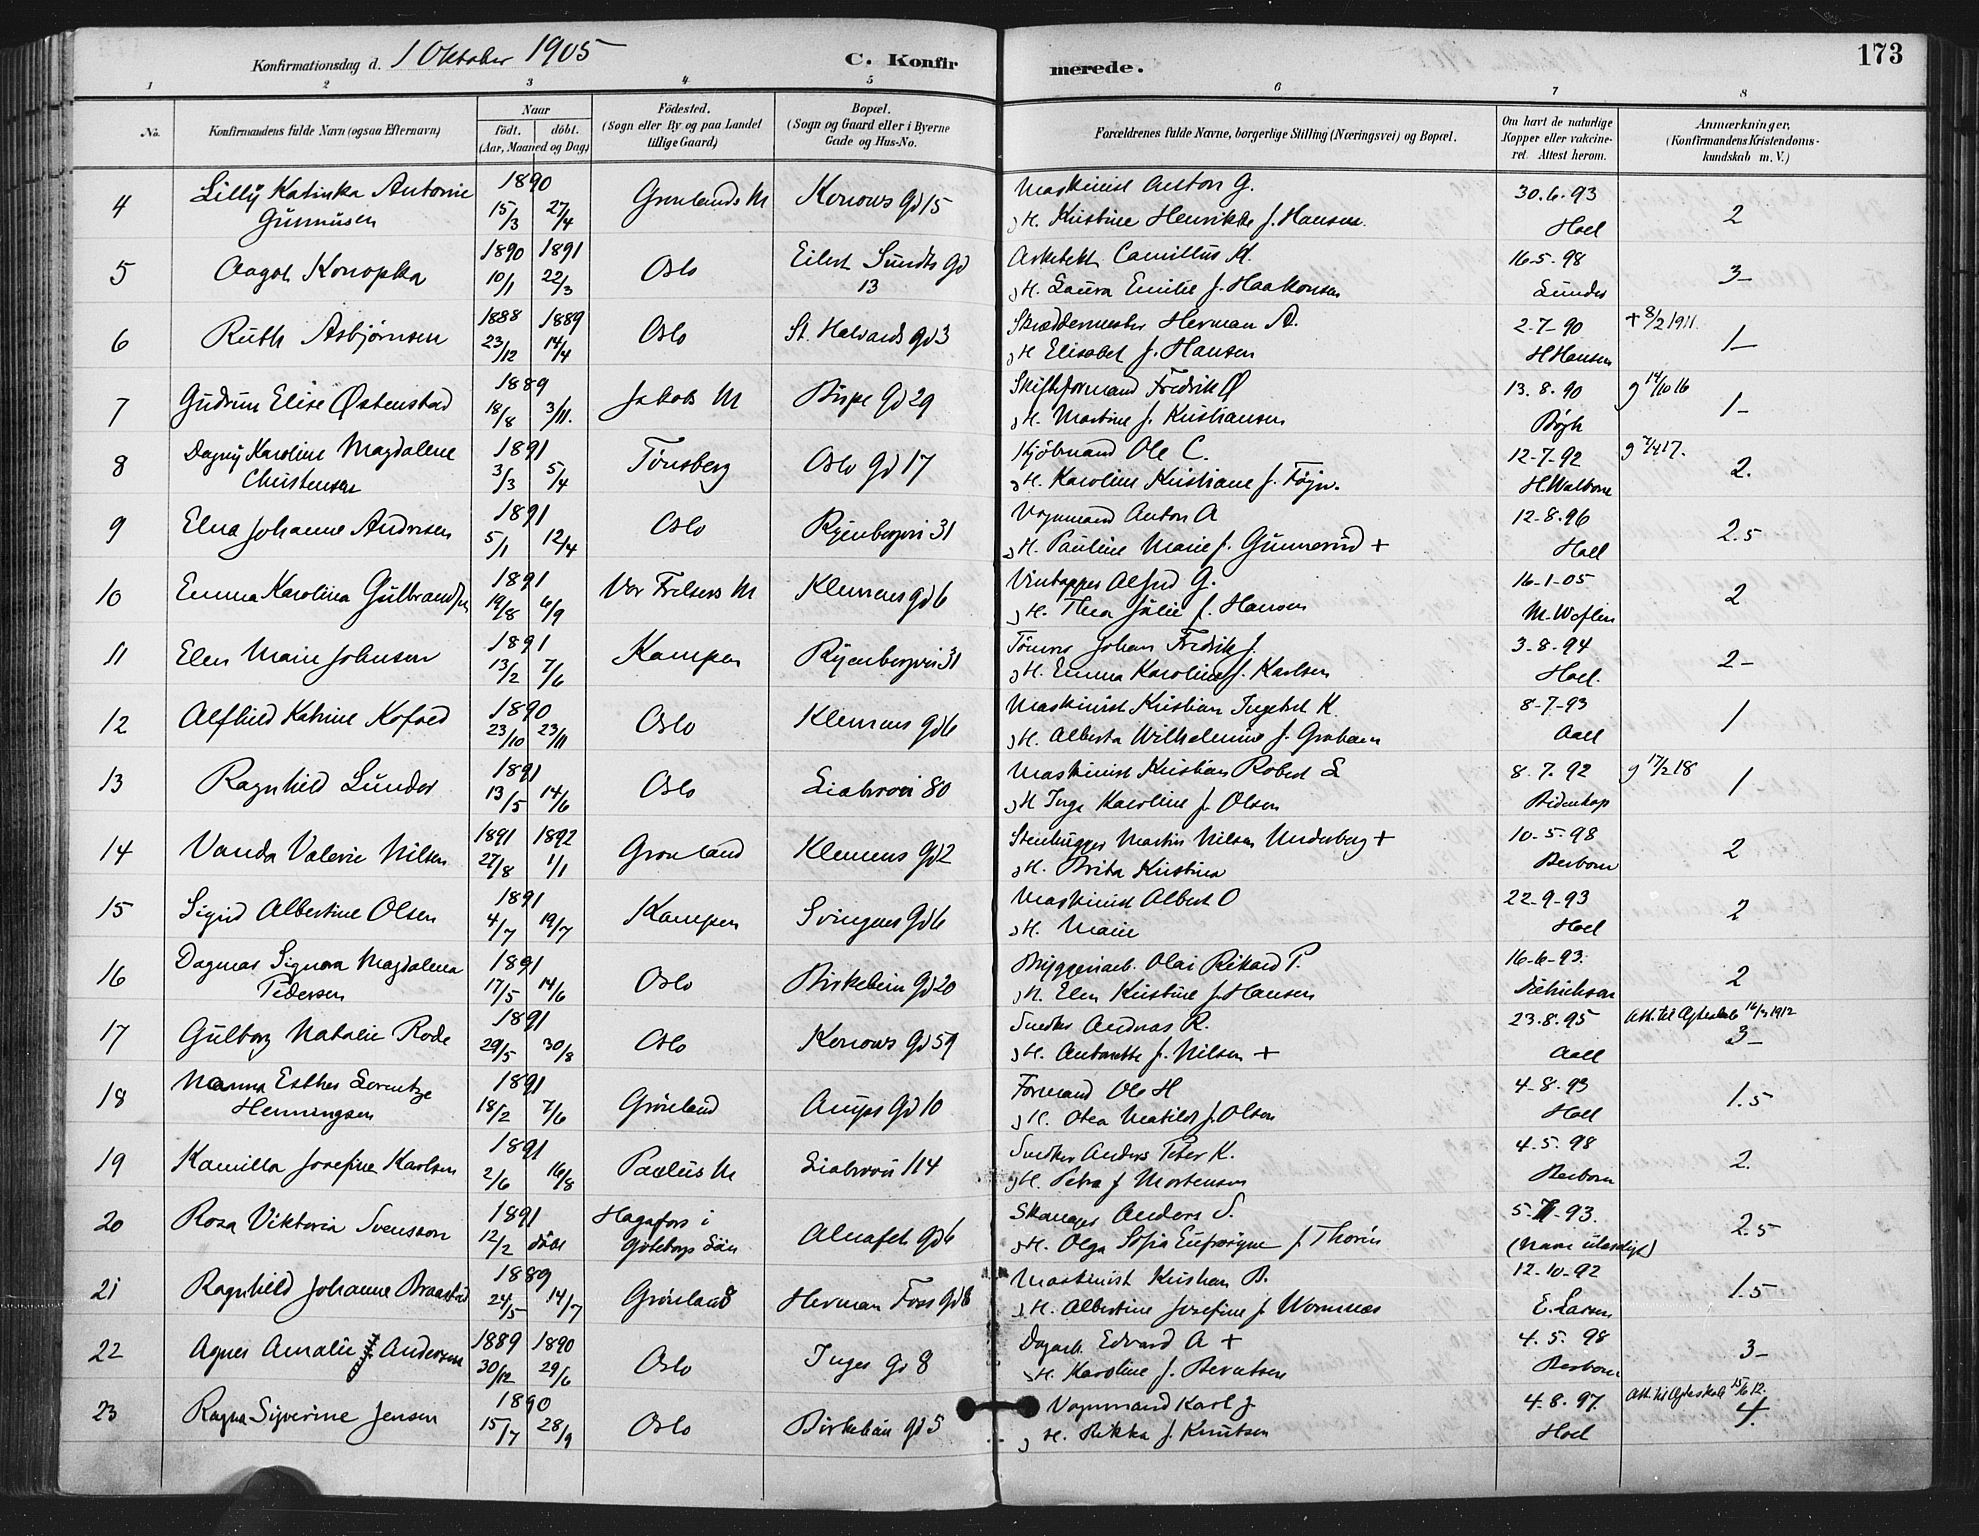 173
Konfirmationsdag d. 1 Oktober 1905 C. Konfirmerede.
1 2 3 4 5 6 7 8
No. Konfirmandens fulde Navn (ogsaa Efternavn) Naar født. døbt. (Aar, Maaned og Dag) Fødested. (Sogn eller By og paa Landet tillige Gaard) Bopæl. (Sogn og Gaard eller i Byerne Gade og Hus-No. Forældrenes fulde Navne, borgerlige Stilling (Næringsvei) og Bopæl. Om havt de naturlige Kopper eller vakcineret. Attest herom. Anmærkninger, (Konfirmandens Kristendomskundskab m. V.)
4 Lilly Katinka Antonie 1890 Grønlands M Konows Gd 15 Maskinist Anton G. 30.6.93 2
Gunnusen 15/3 27/4 H. Kristine Henrikke f. Hansen. Hoel
5 Aagot Konopka 1890 1891 Oslo Eilert Sundts Gd Arkitekt Camillus K. 16-5-98 3-
10/1 22/3 13 H. Laura Emilie f. Haakonsen Lunde
6 Ruth Asbjørnsen 1888 1889 Oslo St. Halvards gd 3 Skræddermester Herman A. 2-7-90 + 8/2 1911. 1-
23/12 14/4 H Elisabet f. Hansen H Hansen
7 Gudrun Elise Østenstad 1889 Jakobs M Bispe Gd 29 Skiftformand Fredrik Ø 13.8.90 g 14/10 16 1-
18/8 3/11. H. Martine f. Kristiansen Bøgh
8 Dagny Karoline Magdalene 1891 Tønsberg Oslo Gd 17 Kjøbmand Ole C. 12-7-92 g 7/4 17. 2.
Christensen 3/3 5/4 H. Karoline Kristiane f. Føyn.
9 Elna Johanne Andresen 1891 Oslo Ryenbergvei 31 Vognmand Anton A 12-8-96 2.5
5/1 12/4 H. Pauline Marie f. Gunnerud + Hoel
10 Emma Karolina Gulbrandsen 1891 Vor Frelsers M Klemens gd 6 Vintapper Alfred G. 16-1-05 2
19/8 6/9 H. Thea Julie f. Hansen
11 Elen Marie Johnsen 1891 Kampen Ryenbergvei 31 Tømrer Johan Fredrik J. 3-8-94 2-
13/2 7/6 H. Emma Karoline f. Karlsen Hoel.
12 Alfhild Katrine Kofoed 1890 Oslo Klemens gd 6 Maskinist Kristian Ingebret K. 8-7-93 1
23/10 23/11 H. Alberta Wilhelmine f. Graham Aall
13 Ragnhild Lunder 1891 Oslo Liabrovei 80 Maskinist Kristian Robert L 8.7.92 g 17/2 18 1
13/5 14/6 H Inga Karoline f. Olsen Bidenkap
14 Vanda Valerie Nilsen 1891 1892 Grønland Klemens Gd 2 Stenhugger Martin Nilsen Underberg + 10-5-98 2
27/8 1/1 H. Brita Kristina Berbom
15 Sigrid Albertine Olsen 1891 Kampen Svingens Gd 6 Maskinist Albert O 22-9-93 2
4/7 19/7 H. Marie Hoel
16 Dagmar Signora Magdalena 1891 Oslo Birkebein Gd 20 Bryggeriarb. Olai Rikard P. 16-6-93. 2
Pedersen 17/5 14/6 H. Elen Kristine f. Hansen Dietrichson
17 Gulborg Natalie Rode 1891 Oslo Konows Gd 59 Snedker Andreas R. 23.8.95 Att. til Ægteskab 16/3 1912 3-
29/5 30/8 H. Antonette f. Nilsen + Aall
18 Nanna Esther Lorentze 1891 Grønland Aaups Gd 10 Formand Ole H 4-8-93 1.5
Henningsen 18/2 7/6 H. Otea Matilde f. Olsen Hoel
19 Kamilla Josefine Karlsen 1891 Paulus M Liabrovei 114 Snedker Anders Peter K. 4.5.98 2.
2/6 16/8 H. Petra f Mortensen Berbom
20 Rosa Viktoria Svensson 1891 Hagafors i Alnafet gd 6 Anders S. 5-7-93. 2.5
12/2 døbt Göteborgs Län H. Olga Sofia Eufrosyne f Thorin (Navn ulæseligt)
21 Ragnhild Johanne Braastad 1889 Grønland Herman Foss Gd 8 Maskinist Kristian B. 12-10-92 1.5
24/5 14/7 H. Albertine Josefine f Wormnæs E. Larsen
22 Agnes Amalie Andersen 1889 1890 Oslo Inges Gd 8 Dagarb. Edvard A + 4.5.98 3-
30/12 29/6 H. Karoline f. Berntsen Berbom
23 Ragna Sigverine Jensen 1890 Oslo Birkebein Gd 5 Vognmand Karl J. 4.8.97. Att. til Ægteskab 15/6 12. 4.
15/7 28/9 H. Rikka f. Knutsen Hoel